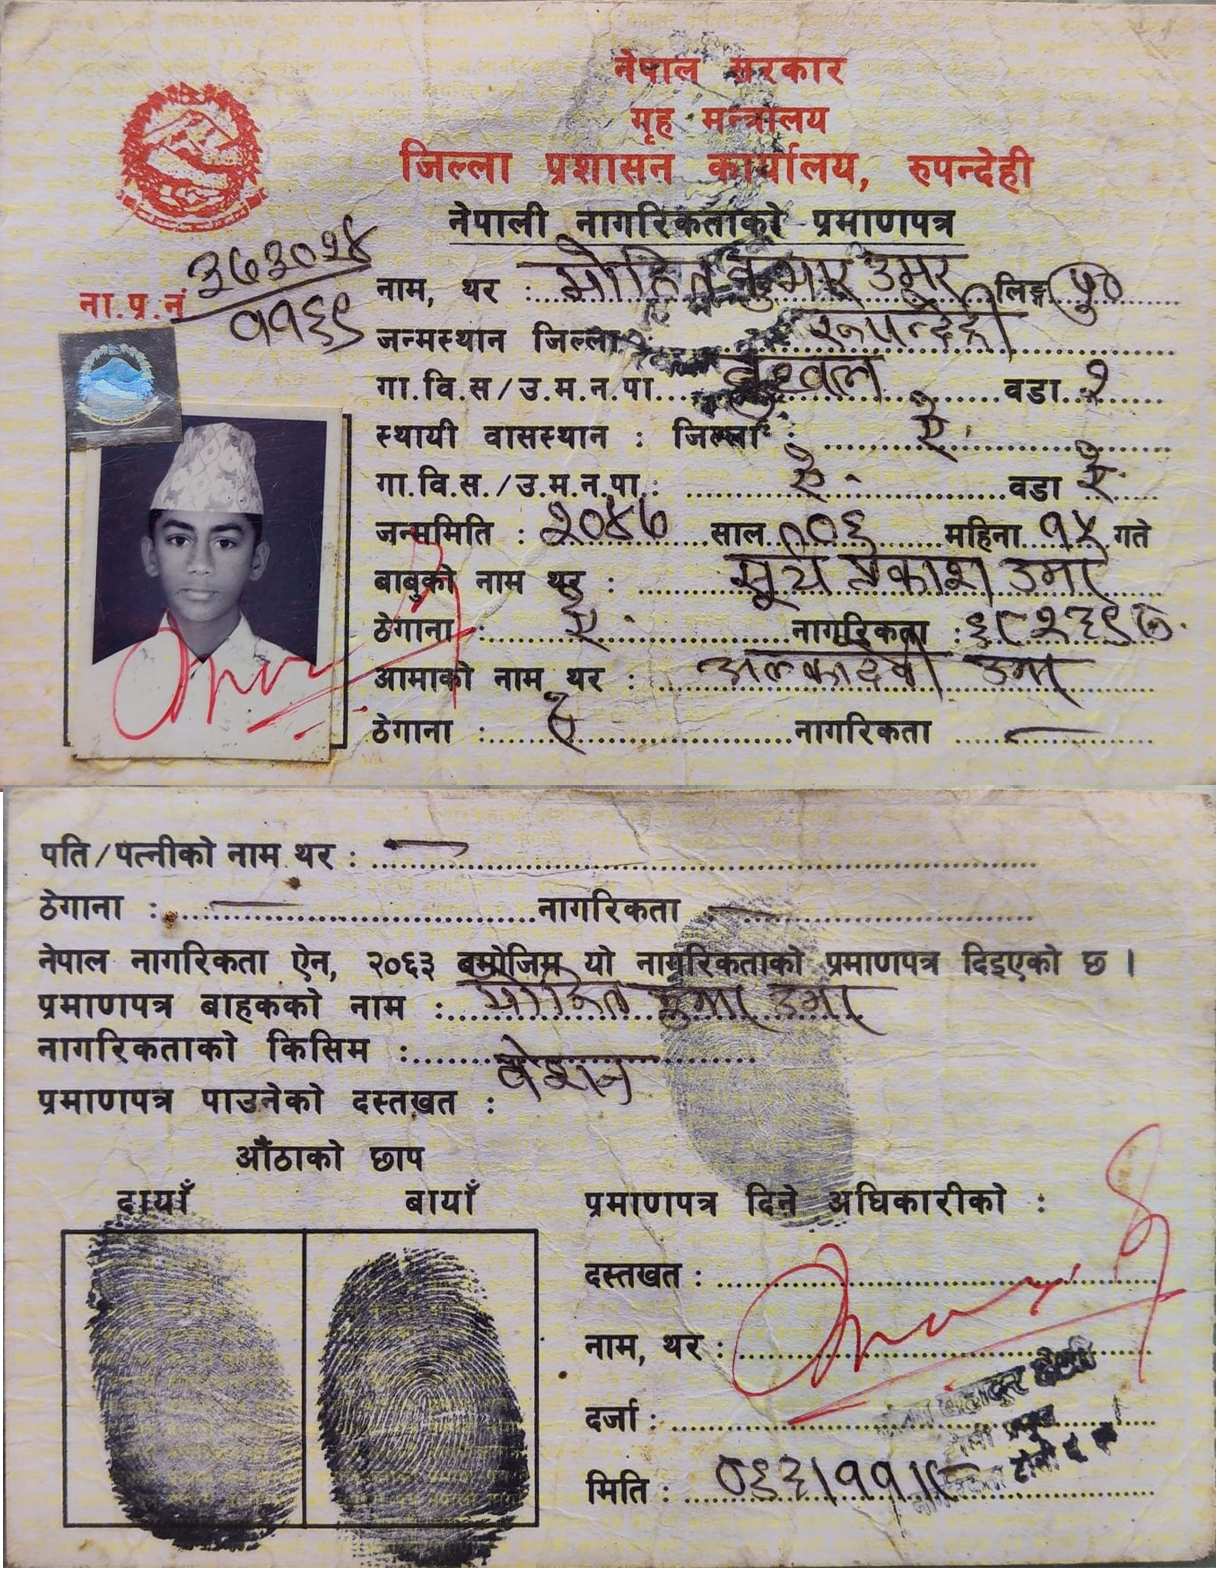 नेपाल सरकार
गृह मन्त्रालय
जिल्ला प्रशासन कार्यालय, रुपन्देही
नेपाली नागरिकताको प्रमाणपत्र
ना.प्र.नं ३७३०२४ / ११६९
नाम, थर : मोहित कुमार उमर लिङ्ग पु०
जन्मस्थान जिल्ला : रूपन्देही
गा.वि.स/उ.म.न.पा. बुटवल वडा २
स्थायी वासस्थान : जिल्ला : ऐ.
गा.वि.स./उ.म.न.पा.: ऐ. वडा ऐ.
जन्ममिति : २०४७ साल ००६ महिना १५ गते
बाबुको नाम थर : सूर्य प्रकाश उमर
ठेगाना : ऐ. नागरिकता :
आमाको नाम थर : अल्का देवी उमर
ठेगाना : ऐ नागरिकता —
पति/पत्नीको नाम थर : —
ठेगाना : — नागरिकता —
नेपाल नागरिकता ऐन, २०६३ बमोजिम यो नागरिकताको प्रमाणपत्र दिइएको छ ।
प्रमाणपत्र बाहकको नाम : मोहित कुमार उमर
नागरिकताको किसिम : वंशज
प्रमाणपत्र पाउनेको दस्तखत :
औंठाको छाप
दायाँ बायाँ
प्रमाणपत्र दिने अधिकारीको :
दस्तखत :
नाम, थर :
दर्जा :
मिति :